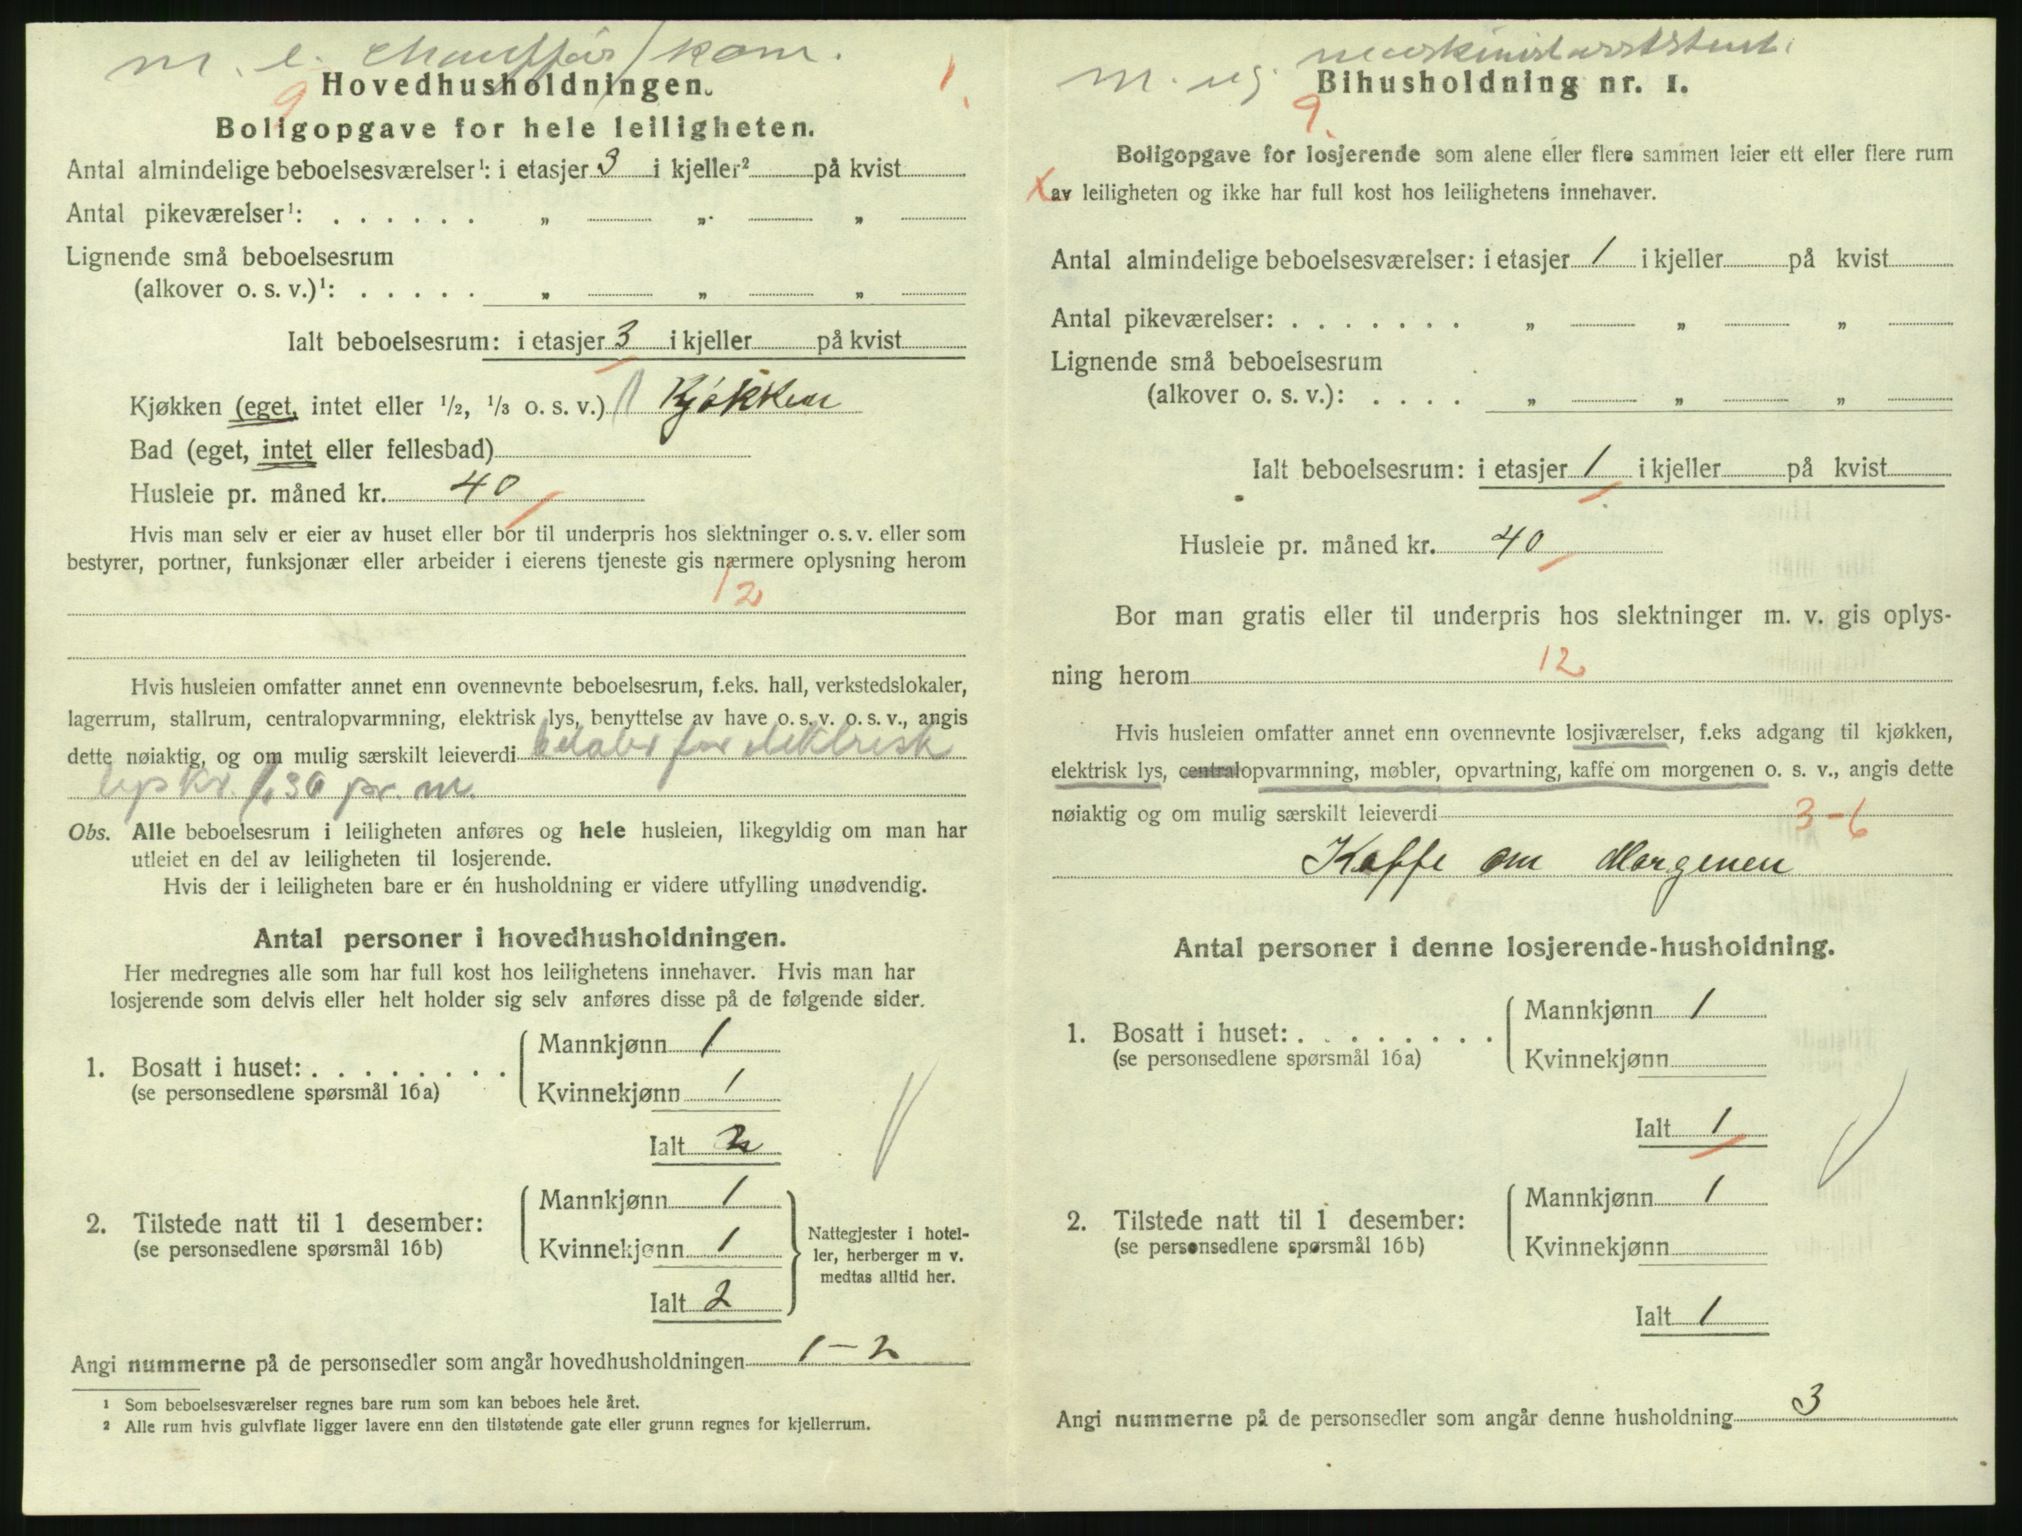 m. e. chauffør/kom.
9
1.
Hovedhusholdningen.
Boligopgave for hele leiligheten.
Antal almindelige beboelsesværelser¹: i etasjer 3 i kjeller² på kvist
Antal pikeværelser¹: . . . . . . „ „ „
Lignende små beboelsesrum
(alkover o. s. v.)¹: . . . . . „ „ „
Ialt beboelsesrum: i etasjer 3 i kjeller på kvist
Kjøkken (eget, intet eller ½, ⅓ o. s. v.) 1 Kjøkken
Bad (eget, intet eller fellesbad)
Husleie pr. måned kr. 40
Hvis man selv er eier av huset eller bor til underpris hos slektninger o. s. v. eller som
bestyrer, portner, funksjonær eller arbeider i eierens tjeneste gis nærmere oplysning herom
12
Hvis husleien omfatter annet enn ovennevnte beboelsesrum, f.eks. hall, verkstedslokaler,
lagerrum, stallrum, centralopvarmning, elektrisk lys, benyttelse av have o. s. v. o. s. v., angis
dette nøiaktig, og om mulig særskilt leieverdi betaler for elektrisk
lys kr. 1,36 pr. m.
Obs. Alle beboelsesrum i leiligheten anføres og hele husleien, likegyldig om man har
utleiet en del av leiligheten til losjerende.
Hvis der i leiligheten bare er én husholdning er videre utfylling unødvendig.
Antal personer i hovedhusholdningen.
Her medregnes alle som har full kost hos leilighetens innehaver. Hvis man har
losjerende som delvis eller helt holder sig selv anføres disse på de følgende sider.
1. Bosatt i huset: . . . . . . . .
(se personsedlene spørsmål 16a)
Mannkjønn 1
Kvinnekjønn 1
Ialt 2
2. Tilstede natt til 1 desember:
(se personsedlene spørsmål 16b)
Mannkjønn 1
Kvinnekjønn 1
Ialt 2
Nattegjester i hotel-
ler, herberger m v.
medtas alltid her.
Angi nummerne på de personsedler som angår hovedhusholdningen 1-2
¹ Som beboelsesværelser regnes bare rum som kan beboes hele året.
² Alle rum hvis gulvflate ligger lavere enn den tilstøtende gate eller grunn regnes for kjellerrum.
m. ug. maskinistassistent.
Bihusholdning nr. 1.
9.
Boligopgave for losjerende som alene eller flere sammen leier ett eller flere rum
x av leiligheten og ikke har full kost hos leilighetens innehaver.
Antal almindelige beboelsesværelser: i etasjer 1 i kjeller på kvist
Antal pikeværelser: . . . . . . . „ „ „
Lignende små beboelsesrum
(alkover o. s. v.): . . . . „ „ „
Ialt beboelsesrum: i etasjer 1 i kjeller på kvist
Husleie pr. måned kr. 40
Bor man gratis eller til underpris hos slektninger m. v. gis oplys-
ning herom 12
Hvis husleien omfatter annet enn ovennevnte losjiværelser, f.eks adgang til kjøkken,
elektrisk lys, centralopvarmning, møbler, opvartning, kaffe om morgenen o. s. v., angis dette
nøiaktig og om mulig særskilt leieverdi 3-6
Kaffe om Morgenen
Antal personer i denne losjerende-husholdning.
1. Bosatt i huset: . . . . . . . .
(se personsedlene spørsmål 16a)
Mannkjønn 1
Kvinnekjønn
Ialt 1
2. Tilstede natt til 1 desember:
(se personsedlene spørsmål 16b)
Mannkjønn 1
Kvinnekjønn
Ialt 1
Angi nummerne på de personsedler som angår denne husholdning 3